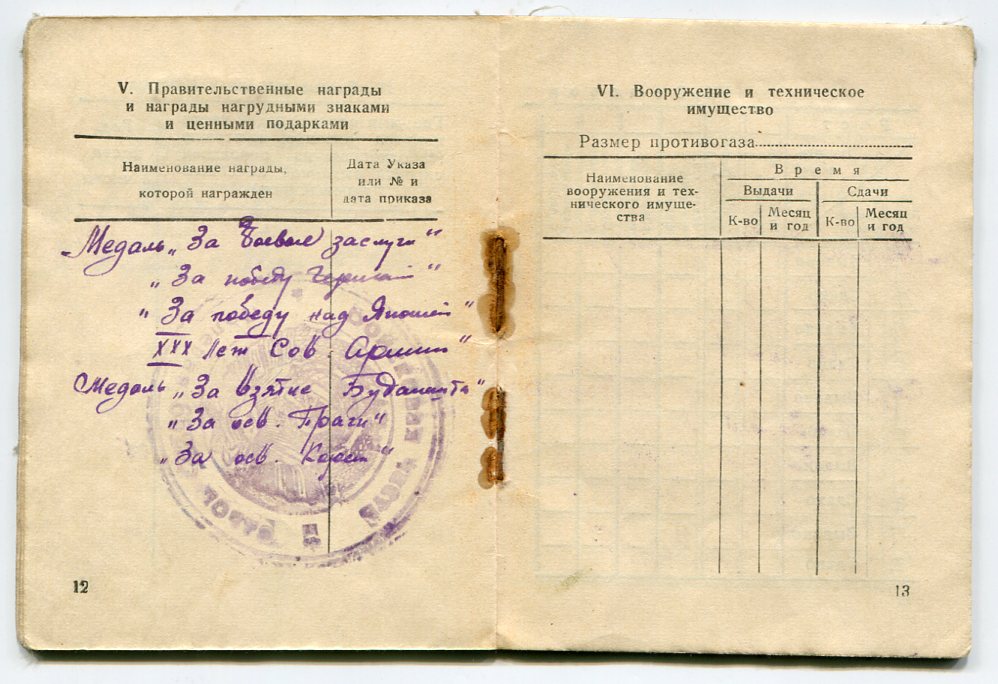 V. Правительственные награды
и награды нагрудными знаками
и ценными подарками
Наименование награды,
которой награжден
Дата Указа
или № и
дата приказа
Медаль „За боевые заслуги"
„За победу Германией"
„За победу над Японией"
XXX лет Сов. Армии"
Медаль „За взятие Будапешта"
„За осв. Праги"
„За осв. Кореи"
12
VI. Вооружение и техническое
имущество
Размер противогаза
Наименование
вооружения и тех-
нического имуще-
ства
Время
Выдачи
Сдачи
К-во
Месяц
и год
К-во
Месяц
и год
13